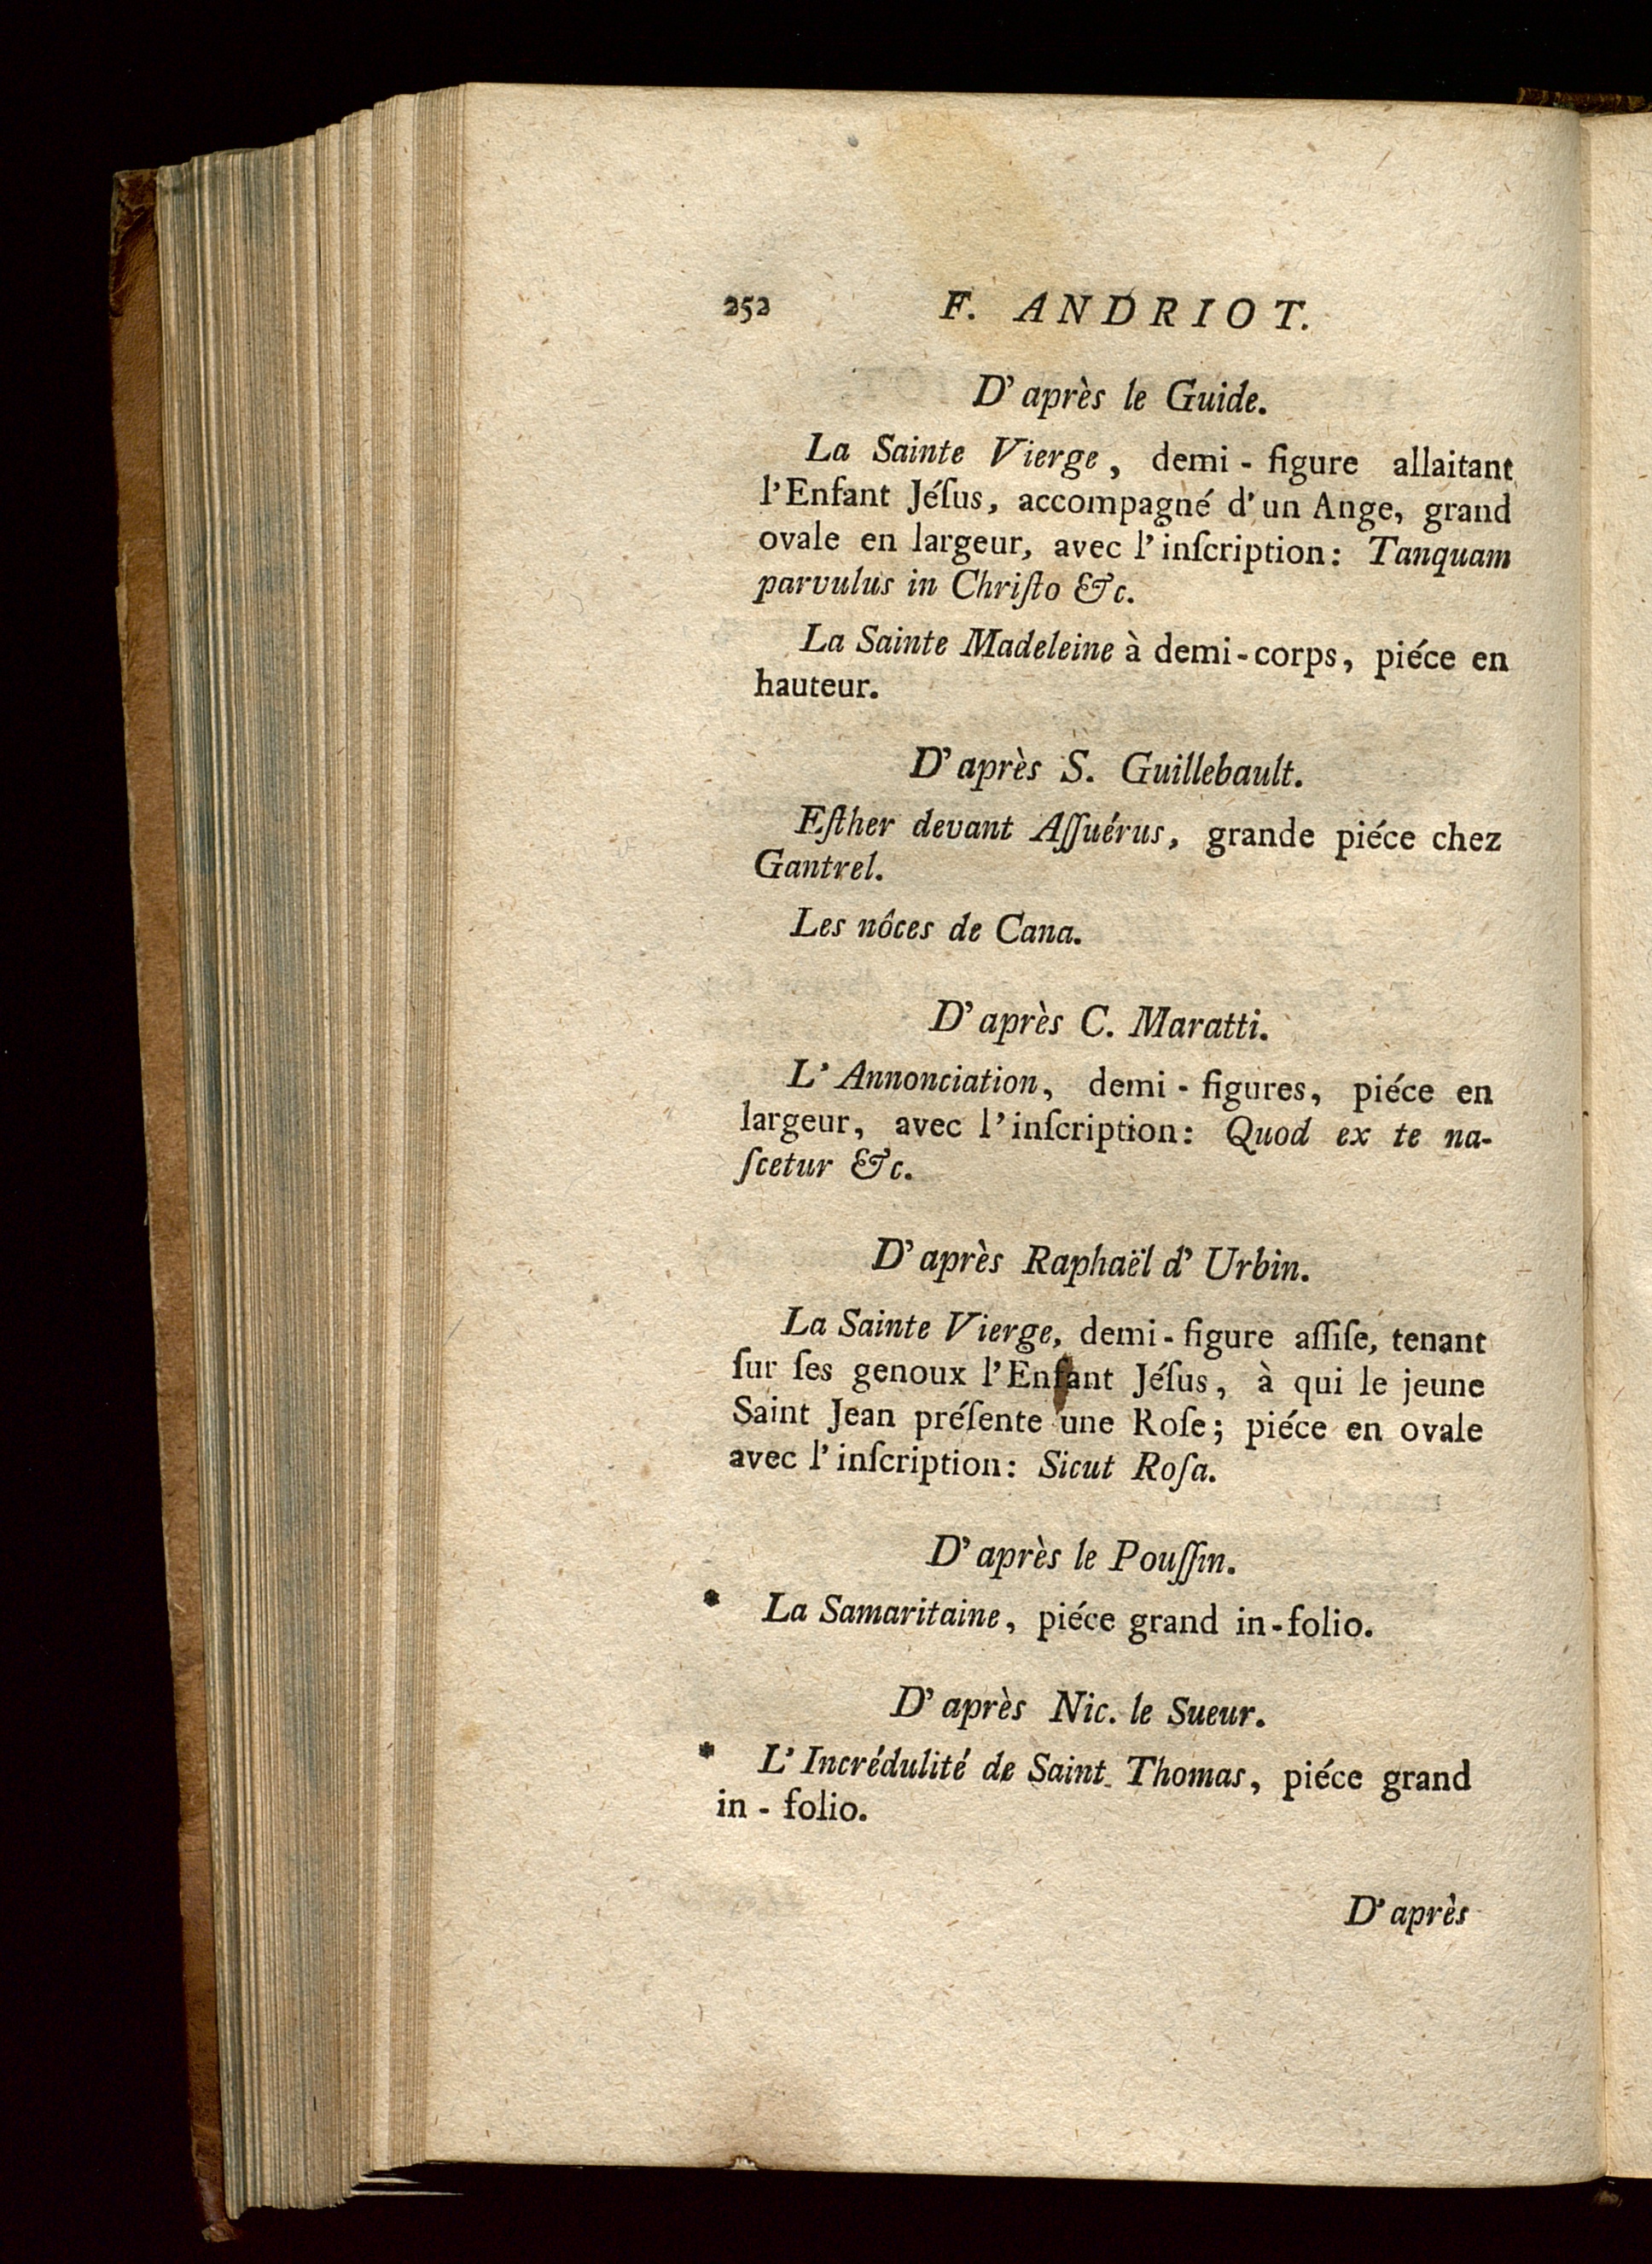 252 F. ANDRIOT.
D'après le Guide.
La Sainte Vierge, demi-figure allaitant
l'Enfant Jéſus, accompagné d'un Ange, grand
ovale en largeur, avec l'inſcription: Tanquam
parvulus in Chriſto &c.
La Sainte Madeleine à demi-corps, piéce en
hauteur.
D'après S. Guillebault.
Eſther devant Aſſuérus, grande piéce chez
Gantrel.
Les nôces de Cana.
D'après C. Maratti.
L'Annonciation, demi-figures, piéce en
largeur, avec l'inſcription: Quod ex te na-
ſcetur &c.
D'après Raphaël d'Urbin.
La Sainte Vierge, demi-figure aſſiſe, tenant
ſur ſes genoux l'Enfant Jéſus, à qui le jeune
Saint Jean préſente une Roſe; piéce en ovale
avec l'inſcription: Sicut Roſa.
D'après le Pouſſin.
* La Samaritaine, piéce grand in-folio.
D'après Nic. le Sueur.
* L'Incrédulité de Saint Thomas, piéce grand
in-folio.
D'après